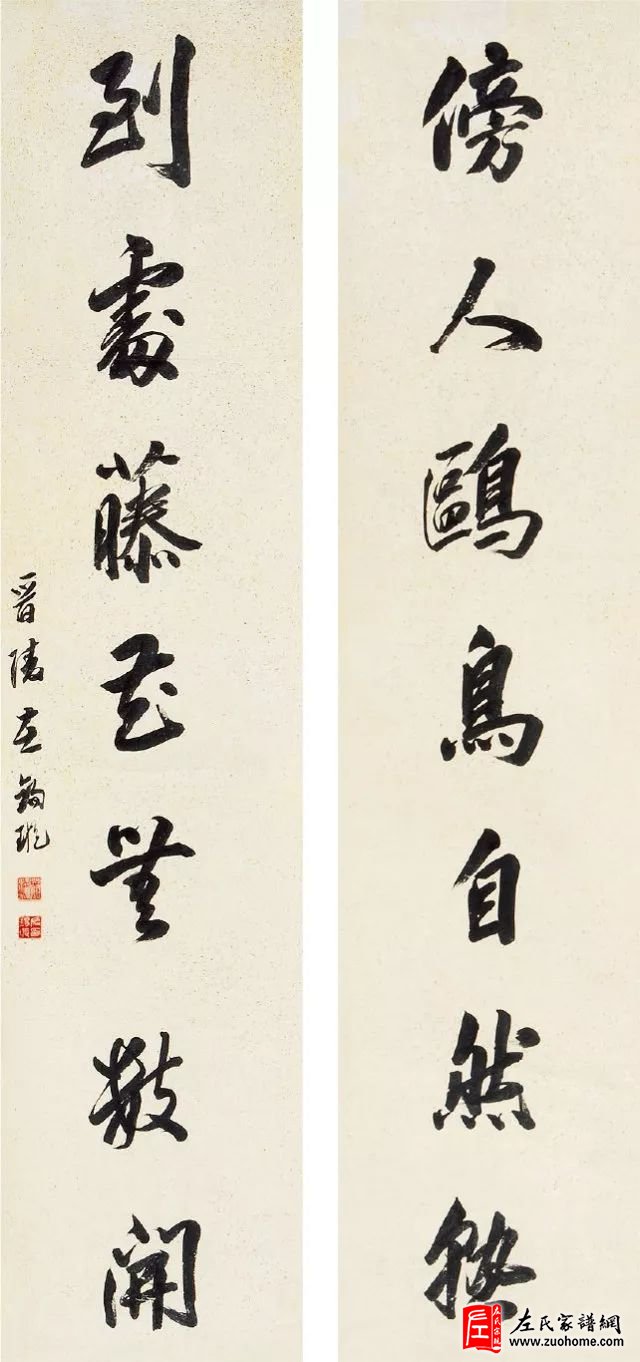 傍人鷗鳥自然熟
到處藤花無數開
晉陵左錫璇
左氏家譜網
www.zuohome.com